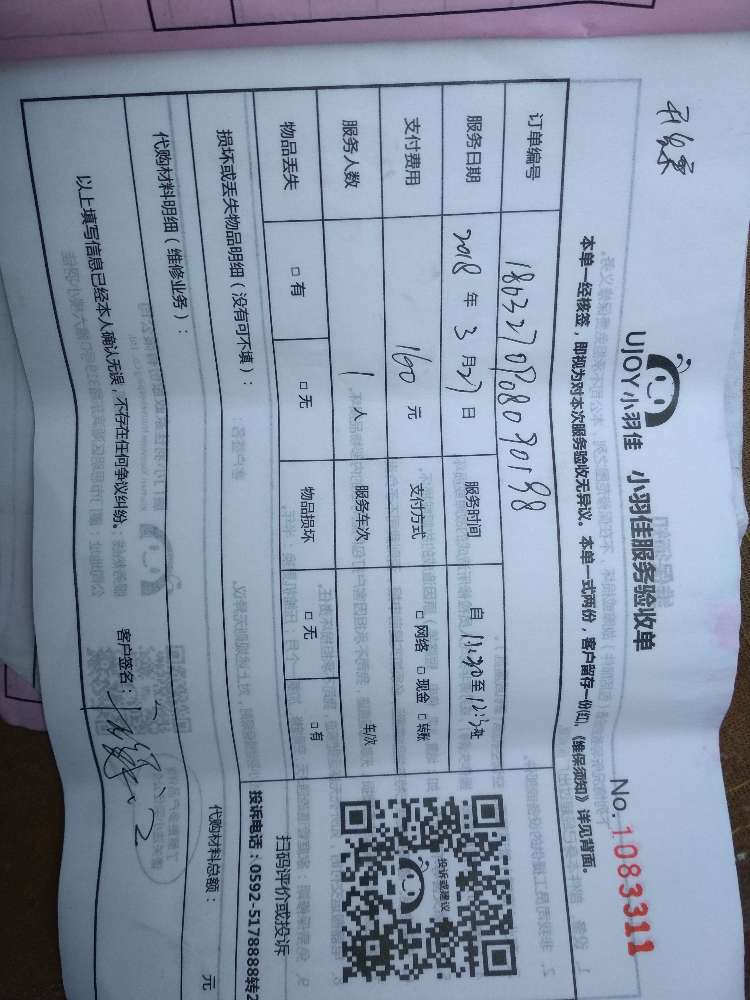 UJOY小羽佳
小羽佳服务验收单
No. 1083311
本单一经核签，即视为对本次服务验收无异议。本单一式两份，客户留存一份，《维保须知》详见背面。
订单编号
服务日期 2018 年 3 月 27 日 服务时间 自 11:30 至 12:30
支付费用 160 元 支付方式 □ 网络 □ 现金 □ 转账
服务人数 1 人 服务车次 车次
物品丢失 □ 有 □ 无 物品损坏 □ 无 □ 有
投诉或建议
扫码评价或投诉
投诉电话：0592-5178888转2
损坏或丢失物品明细（没有可不填）：
代购材料明细（维修业务）：
代购材料总额： 元
以上填写信息已经本人确认无误，不存在任何争议纠纷。
客户签名：